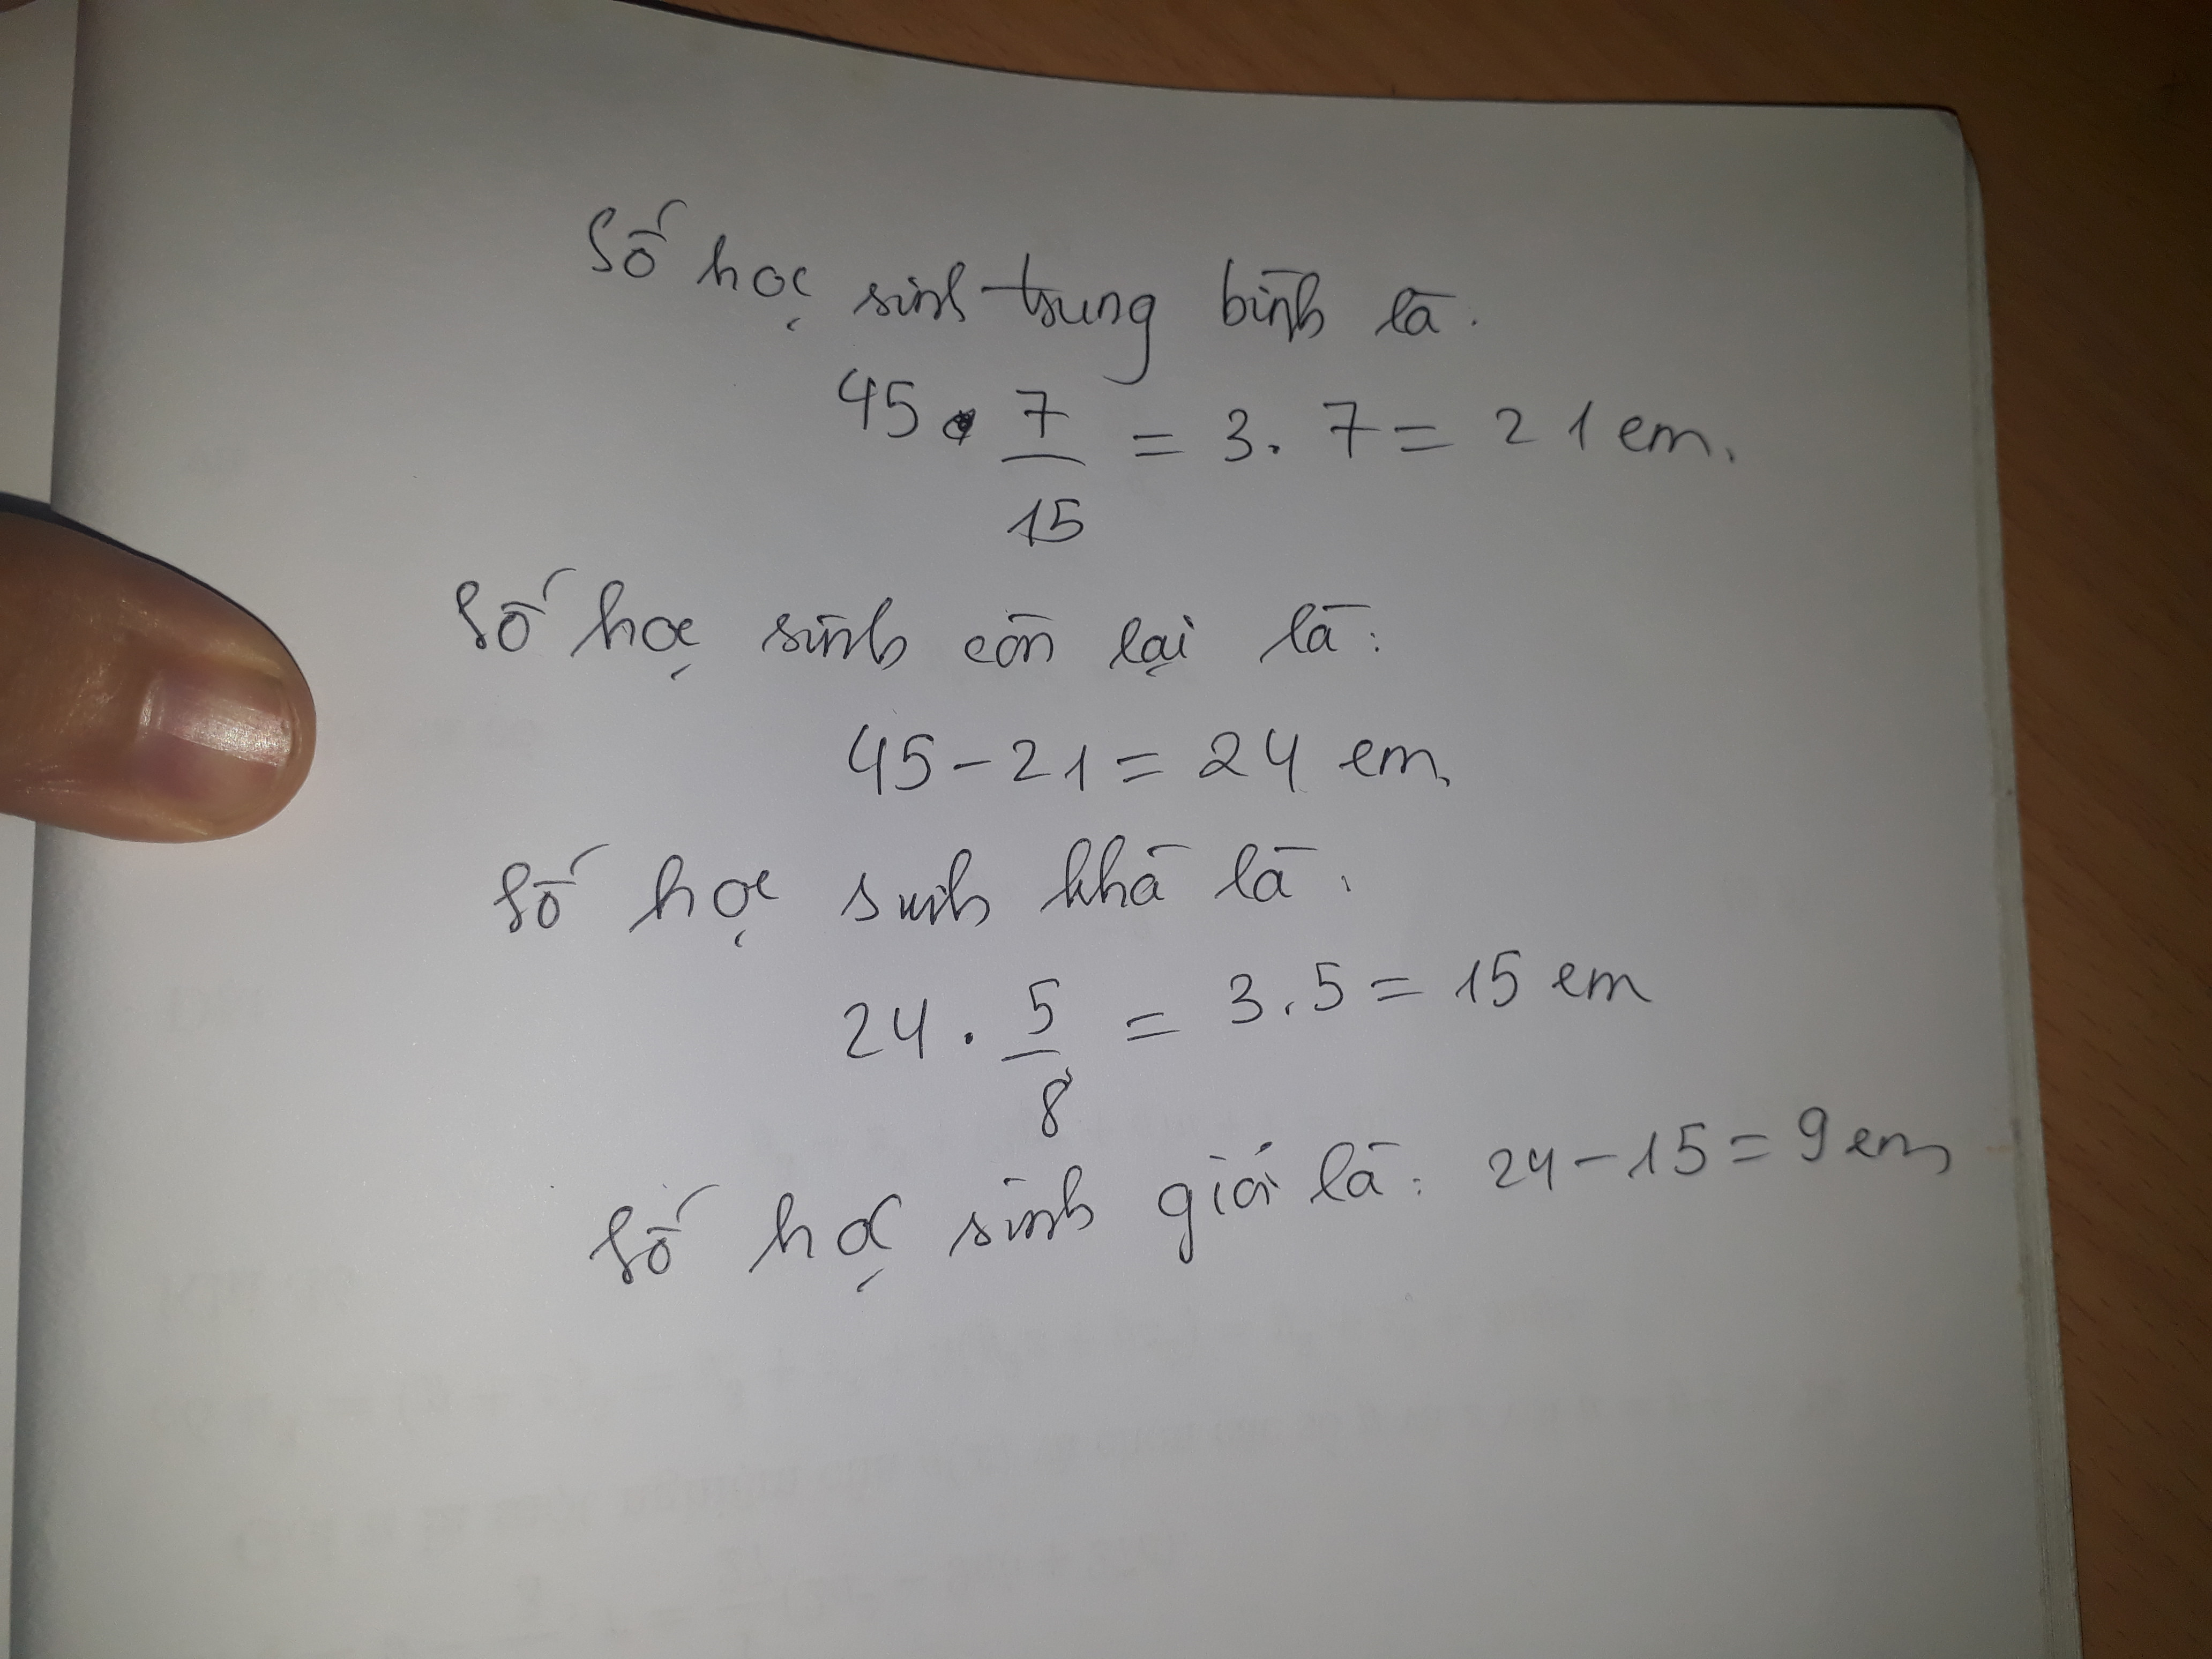 Số học sinh trung bình là.
45 . 7/15 = 3. 7 = 21 em.
Số học sinh còn lại là:
45 - 21 = 24 em
Số học sinh khá là.
24 . 5/8 = 3.5 = 15 em
Số học sinh giỏi là: 24 - 15 = 9 em